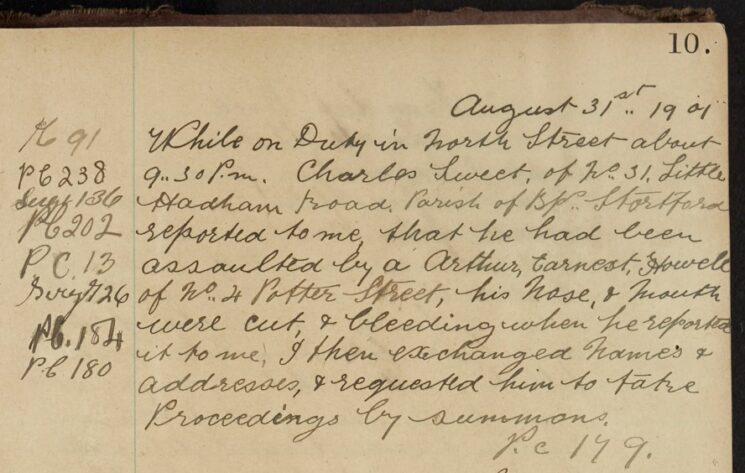 10.
August 31st. 1901
K 91
P C 238
Sergt 136
P C 202
P C. 13
Sergt 26
P C. 184
P C 180
While on Duty in North Street about
9.30 P.m. Charles Sweet, of No. 31, Little
Hadham Road. Parish of Bp. Stortford
reported to me, that he had been
assaulted by a Arthur, Earnest, Howell
of No. 4 Potter Street, his Nose, & Mouth
were cut, & bleeding when he reported
it to me, I then exchanged Names &
addresses, & requested him to take
Proceedings by summons.
P. c 179.